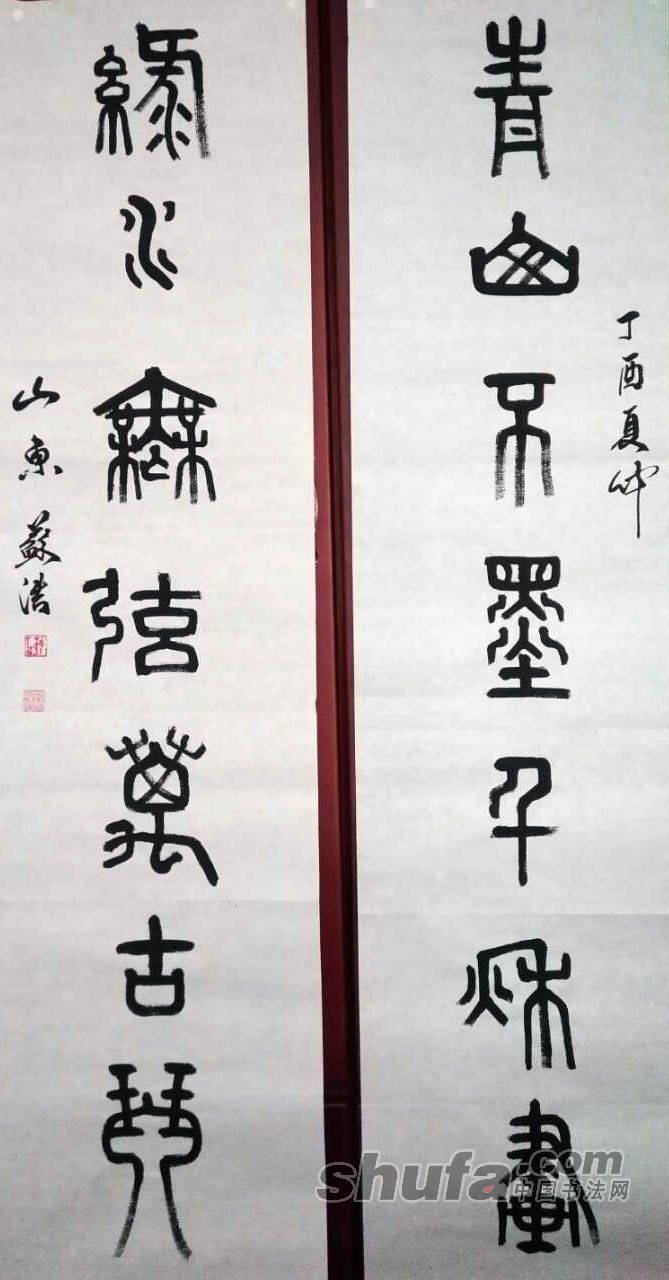 丁酉夏仲
青山不墨千秋畫
綠水無弦萬古琴
山東蘇浩
shufa.com
中国书法网